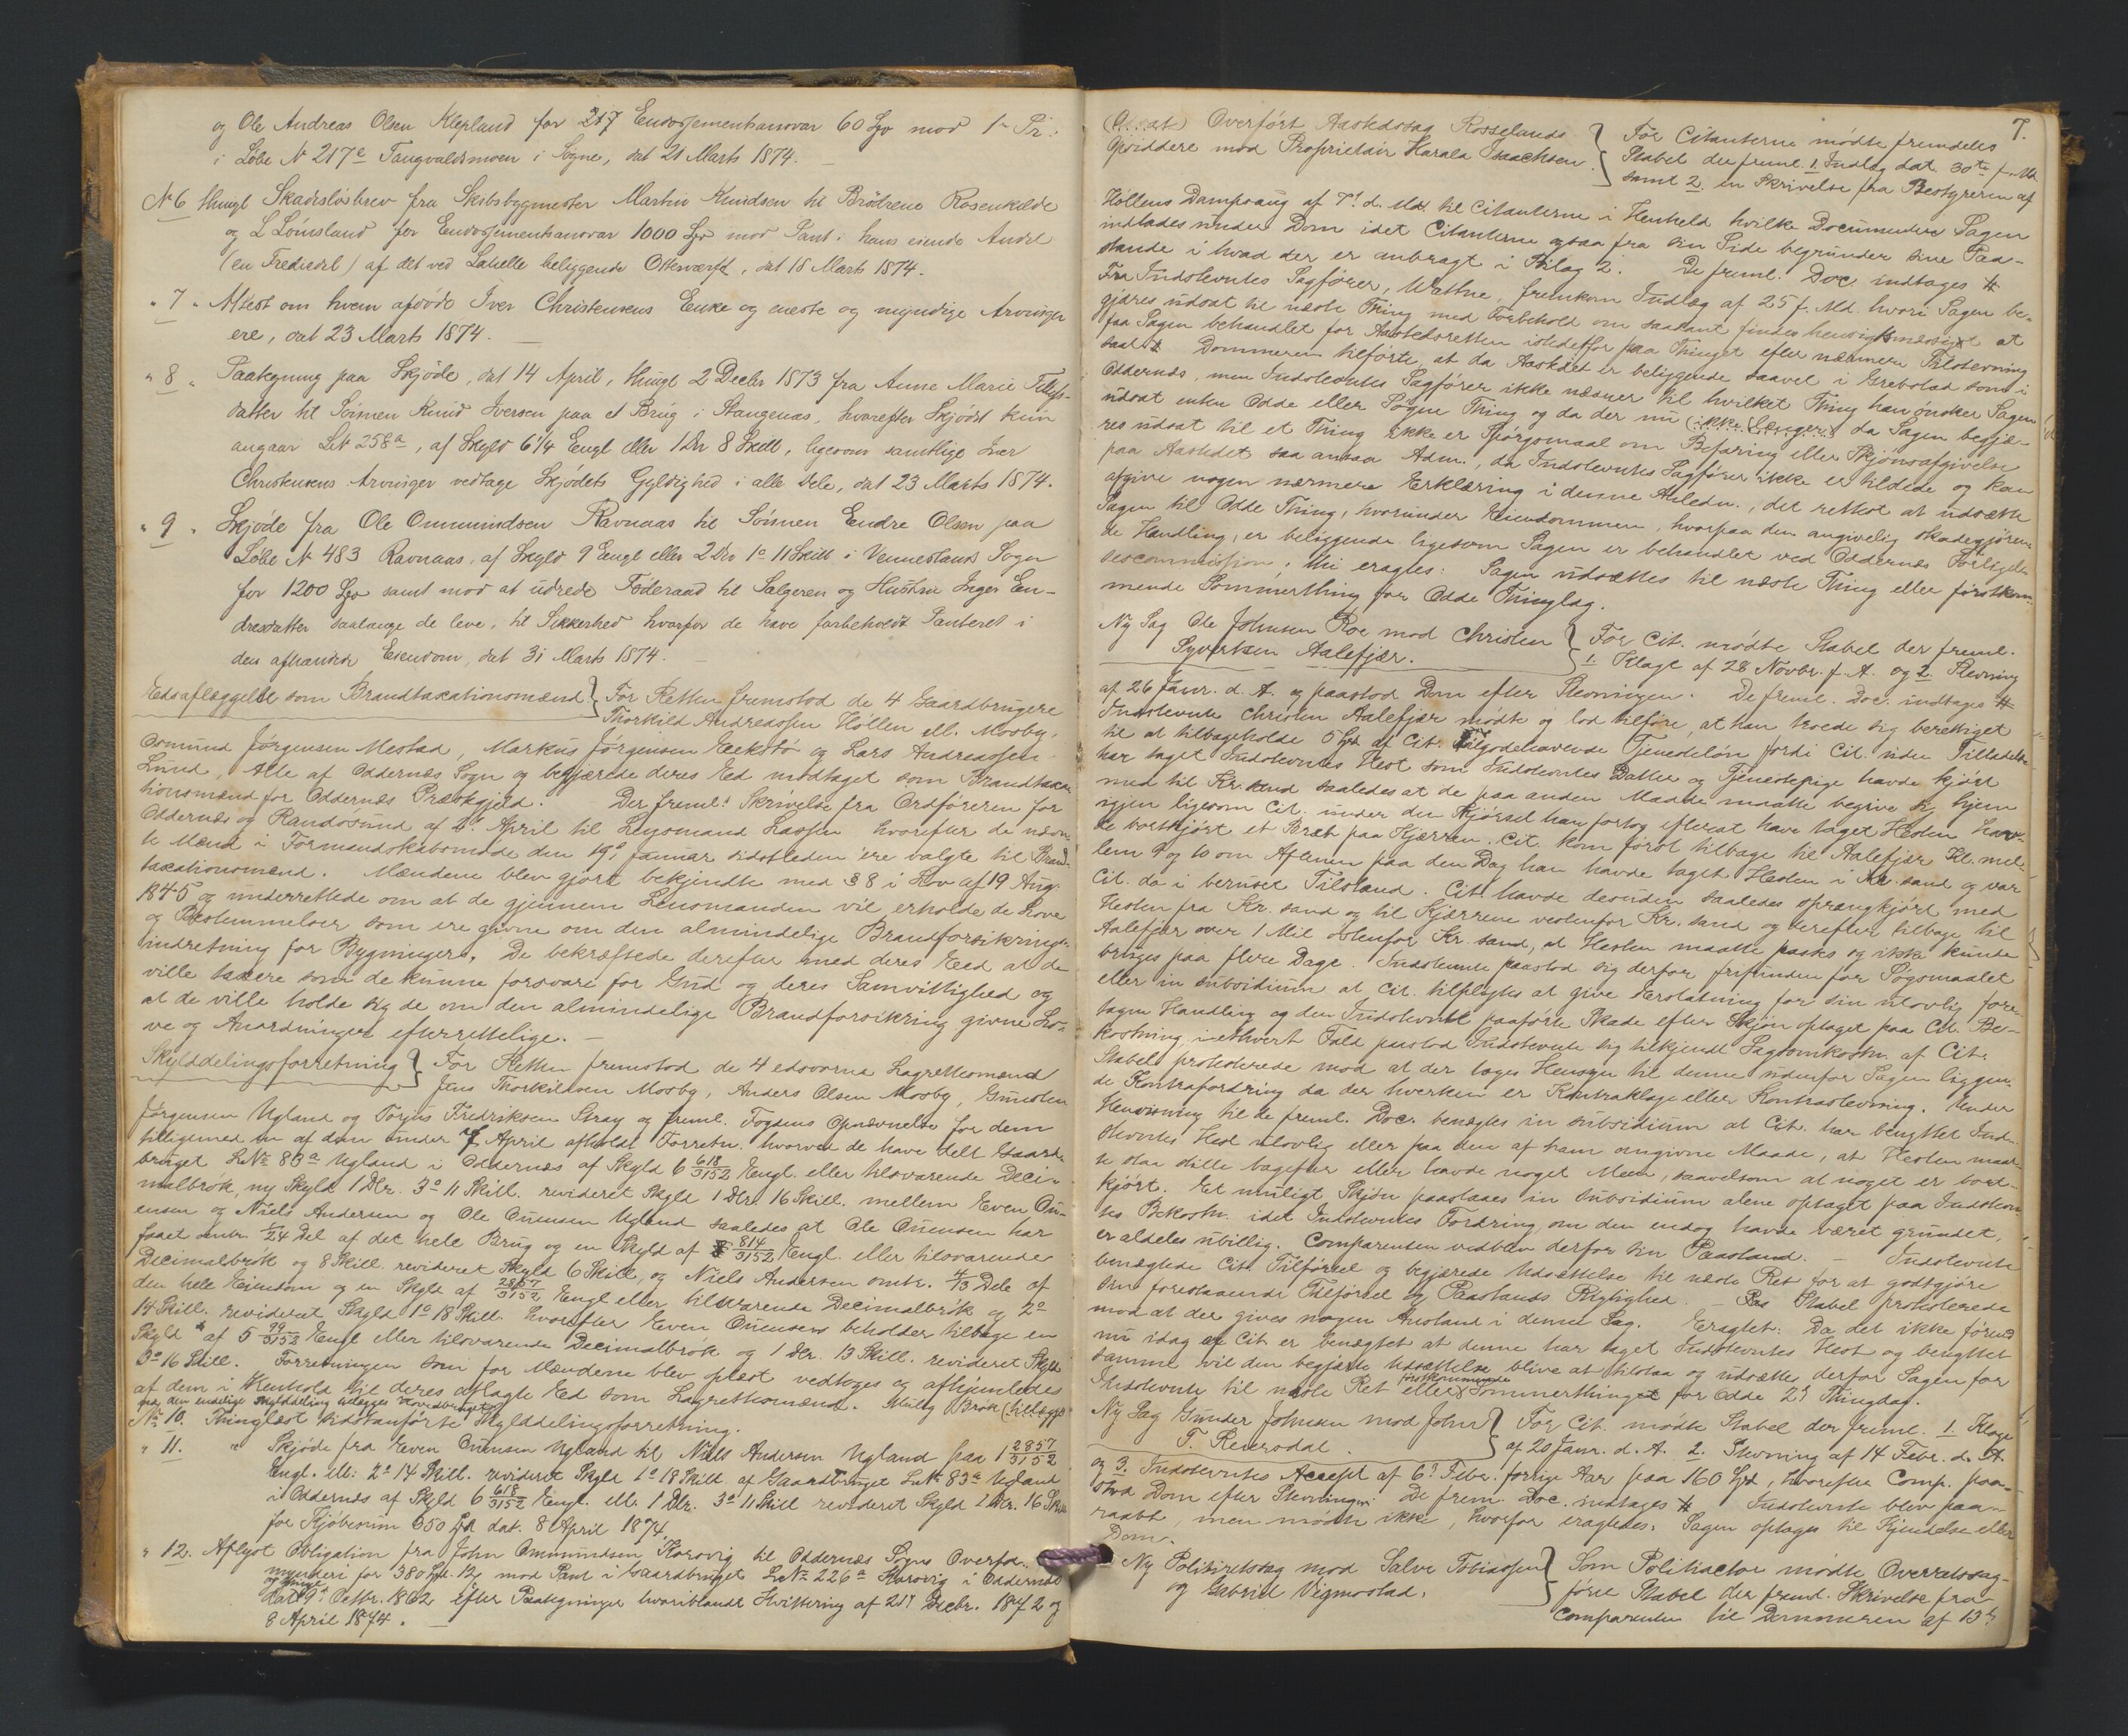 og Ole Andreas Olsen Klepland for 217 Endossementsansvar 60 Spd mod 1ste Pr.
i Løbe N 217c Tangvaldsmoen i Søgne, dat 21 Marts 1874.
N 6 thingl Skadesløsbrev fra Skibsbygmester Martin Knudsen til Brødrene Rosenkilde
og L Lømsland for Endossementsansvar 1000 Spd mod Pant i hans eiende Andel
(en Trediedel) af det ved Lahelle beliggende Otterværft, dat 18 Marts 1874.
" 7 " Attest om hvem afdøde Iver Christensens Enke og eneste og myndige Arvinger
ere, dat 23 Marts 1874.
" 8 " Paategning paa Skjøde, dat 14 April, thingl 2 Decbr 1873 fra Anne Marie Tellefs-
datter til Sønnen Knud Iversen paa et Brug i Stangenæs, hvorefter Skjødet kun
angaar LN 258a, af Skyld 6 1/4 Engl eller 1 Dlr 8 Skill, ligesom samtlige Iver
Christensens Arvinger vedtage Skjødets Gyldighed i alle Dele, dat 23 Marts 1874.
" 9 " Skjøde fra Ole Ommundsen Ravnaas til Sønnen Endre Olsen paa
Løbe N 483 Ravnaas, af Skyld 9 Engl eller 2 Dlr 1o 11 Skill i Vennesland Sogn
for 1200 Spd samt mod at udrede Føderaad til Sælgeren og Hustru Inger En-
dresdatter saalænge de leve, til Sikkerhed hvorfor de have forbeholdt Panteret i
den afhændede Eiendom, dat 31 Marts 1874.
Edsaflæggelse som Brandtaxationsmænd } For Retten fremstod de 4 Gaardbrugere
Thorkild Andreassen Høllen ell. Mosby,
Osmund Jørgensen Mestad, Markus Jørgensen Eeckstø og Lars Andreassen
Lund, Alle af Oddernæs Sogn og begjærede deres Eed modtaget som Brandtaxa-
tionsmænd for Oddernæs Præstegjeld. Der freml. Skrivelse fra Ordføreren for
Oddernæs og Randøsund af 2d April til Lensmand Lassen hvorefter de nævn-
te Mænd i Formandskabsmøde den 19d Januar sidstleden ere valgte til Brand-
taxationsmænd. Mændene blev gjort bekjendte med § 8 i Lov af 19 Aug.
1845 og underrettede om at de gjennem Lensmanden vil erholde de Love
og Bestemmelser som ere givne om den almindelige Brandforsikrings-
indretning for Bygninger. De bekræftede derefter med deres Eed at de
ville taxere som de kunne forsvare for Gud og deres Samvittighed og
at de ville holde sig de om den almindelige Brandforsikring givne Lo-
ve og Anordninger efterrettelige.
Skylddelingsforretning } For Retten fremstod de 4 edsvorne Lagrettesmænd
Jens Thorkildsen Mosby, Anders Olsen Mosby, Gunsten
Jørgensen Ugland og Torjus Fredriksen Stray og freml. Fogdens Opnævnelse for dem
tilligemed en af dem under 7 April afholdt Forretn. hvorved de have delt Gaard-
bruget LNr 83a Ugland i Oddernæs af Skyld 6 618/3152 Engl. eller tilsvarende Deci-
malbrøk, ny Skyld 1 Dlr. 3o 11 Skill. revideret Skyld 1 Dlr. 16 Skill. mellem Even On-
ensen og Niels Andersen og Ole Onensen Ugland saaledes at Ole Onensen har
faaet omtr. 1/24 Del af det hele Brug og en Skyld af 814/3152 Engl. eller tilsvarende
Decimalbrøk og 8 Skill. revideret Skyld 6 Skill, og Niels Andersen omtr. 4/13 Dele af
den hele Eiendom og en Skyld af 2857/3152 Engl eller tilsvarende Decimalbrøk og 2o
14 Skill. revideret Skyld 1o 18 Skill. hvorefter Even Onensens beholder tilbage en
Skyld af 5 99/3152 Engl eller tilsvarende Decimalbrøk og 1 Dlr. 13 Skill. revideret Skyld
3o 16 Skill. Forretningen som for Mændene blev oplæst vedtoges og afhjemledes
af dem i Henhold til deres aflagte Eed som Lagrettesmænd. Mulig Brøk (tillægges
No 10. Thinglæst sidstanførte Skylddelingsforretning.
" 11. " Skjøde fra Even Onensen Ugland til Niels Andersen Ugland paa 1 2857/3152
Engl. ell: 2o 14 Skill. revideret Skyld 1o 18 Skill af Gaardbruget LNr 83a Ugland
i Oddernæs af Skyld 6 618/3152 Engl. ell. 1 Dlr. 3o 11 Skill revideret Skyld 1 Dlr. 16 Skill
for Kjøbesum 350 Spd dat. 8 April 1874.
" 12. Aflyst Obligation fra John Ommundsen Korsvig til Oddernæs Sogns Overfor-
mynderi for 380 Spd. 12 mod Pant i Gaardbruget LNr 226a Korsvig i Oddernæs
dat. 9d Octbr. 1862 efter Paategninger hvoriblandt Kvittering af 21d Decbr. 1872 og
8 April 1874.
7.
Overført Aastedssag Rosselands
Opsiddere mod Proprietair Harald Isaachsen. } For Citanterne mødte fremdeles
Stabel der freml. 1. Indlæg dat. 30te f. M.
samt 2. en Skrivelse fra Bestyreren af
Høllens Dampsaug af 7d d. Md. til Citanterne i Henhold hvilke Documenter Sagen
indlades under Dom idet Citanterne ogsaa fra sin Side begrunder sine Paa-
stande i hvad der er anbragt i Bilag 2. De freml. Doc. indtages #
Fra Indstevntes Sagfører, Wattne, fremkom Indlæg af 25 f. Md. hvori Sagen be-
gjæres udsat til næste Thing med Forbehold om saasant findes hensigtsmæssigt at
faa Sagen behandlet for Aastedsretten istedetfor paa Thinget efter nærmere Tilstevning
saal. # Dommeren tilførte, at da Aastedet er beliggende saavel i Grebstad som i
Oddernæs, men Indstevntes Sagfører ikke nævner til hvilket Thing han ønsker Sagen
udsat enten Odde eller Søgne Thing og da der nu (ikke længer) da Sagen begjæ-
res udsat til et Thing ikke er Spørgsmaal om Befaring eller Skjønsafgivelse
paa Aastedet saa ansaa Adm., da Indstevntes Sagfører ikke er tilstede og kan
afgive nogen nærmere Erklæring i denne Anledn., det rettest at udsætte
Sagen til Odde Thing, hvorunder Eiendommen, hvorpaa den angivelig skadegjøren-
de Handling, er beliggende ligesom Sagen er behandlet ved Oddernæs Forligel-
sescommission; thi eragtes: Sagen udsættes til næste Thing eller førstkom-
mende Sommerthing for Odde Thinglag.
Ny Sag Ole Johnsen Roe mod Christen
Syvertsen Aalefjær. } For Cit. mødte Stabel der freml.
1. Klage af 28 Novbr. f. A. og 2. Stevning
af 26 Janr. d. A. og paastod Dom efter Stevningen. De freml. Doc. indtages #
Indstevnte Christen Aalefjær mødte og lod tilføre, at han troede sig berettiget
til at tilbageholde 5 Spd af Cit. tilgodehavende Tjenesteløn fordi Cit. uden Tilladelse
har taget Indstevntes Hest som Indstevntes Datter og Tjenestepige havde kjørt
med til Kr.sand saaledes at de paa anden Maade maatte begive sig hjem
igjen ligesom Cit. under den Kjørsel han fortog efterat have taget Hesten hav-
de bortkjørt et Bræt paa Kjærren. Cit. kom først tilbage til Aalefjær Kl. mel-
lem 9 og 10 om Aftenen paa den Dag han havde taget Hesten i Kr.sand og var
Cit. da i beruset Tilstand. Cit. havde desuden saaledes sprængkjørt med
Hesten fra Kr.sand og til Kjærrene vestenfor Kr.sand og derefter tilbage til
Aalefjær over 1 Mil østenfor Kr.sand, at Hesten maatte passes og ikke kunde
bruges paa flere Dage. Indstevnte paastod sig derfor frifunden for Søgsmaalet
eller in subsidium at Cit. tilpligtes at give Erstatning for sin ulovlig fore-
tagne Handling og den Indstevnte paaførte Skade efter Skjøn optaget paa Cit. Be-
kostning, i ethvert Fald paastod Indstevnte sig tilkjendt Sagsomkostn. af Cit.
Stabel protesterede mod at der toges Hensyn til denne udenfor Sagen liggen-
de Kontrafordring da der hverken er Kontraklage eller Kontrastevning. Under
Henvisning til de freml. Doc. benægtes in subsidium at Cit. har benyttet Ind-
stevntes Hest ulovlig eller paa den af ham angivne Maade, at Hesten maat-
te staa stille bagefter eller havde noget Meen, saavelsom at noget er bort-
kjørt. Et muligt Skjøn paastaaes in subsidium alene optaget paa Indstevn-
tes Bekostn. idet Indstevntes Fordring, om den endog havde været grundet,
er aldeles ubillig. Comparenten vedblev derfor sin Paastand. — Indstevnte
benægtede Cit. Tilførsel og begjærede Udsættelse til næste Ret for at godtgjøre
sin forestaaende Tilførsel og Paastands Rigtighed. — Stabel protesterede
mod at der gives nogen Anstand i denne Sag. Eragtet: Da det ikke førend
nu idag af Cit. er benægtet at denne har taget Indstevntes Hest og benyttet
samme vil den begjærte Udsættelse blive at tilstaa og udsættes derfor Sagen for
Indstevnte til næste Ret eller førstkommende Sommerthinget for Odde 2d Thingdag.
Ny Sag Gunder Johnsen mod John
T. Reiersdal. } For Cit. mødte Stabel der freml. 1. Klage
af 20 Janr. d. A. 2. Stevning af 14 Febr. d. A.
og 3. Indstevntes Accept af 6d Febr. forrige Aar paa 160 Spd, hvorefter Comp. paa-
stod Dom efter Stevningen. De frem. Doc. indtages # Indstevnte blev paa-
raabt, men mødte ikke, hvorfor eragtedes: Sagen optages til Kjendelse eller
Dom.
Ny Politiretssag mod Salve Tobiassen
og Gabriel Vigmostad. } Som Politiactor mødte Overretssag-
fører Stabel der freml. Skrivelse fra
Comparenten til Dommeren af 13d